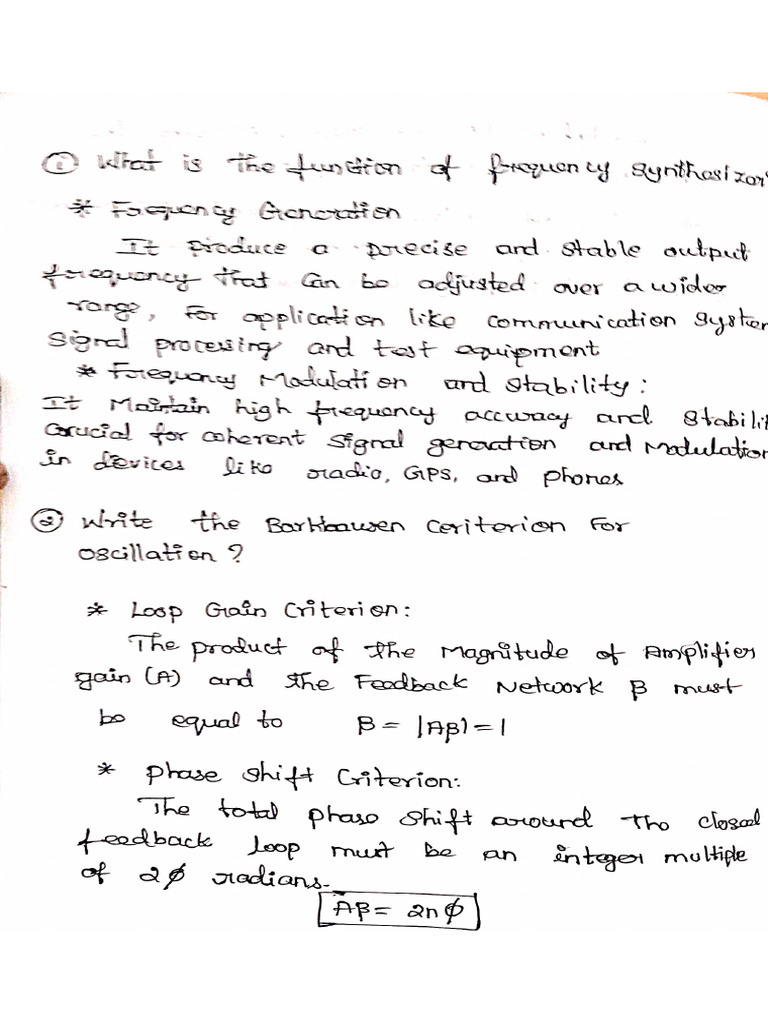 ① What is the function of frequency synthesizer
* Frequency Generation
It produce a precise and stable output
frequency that can be adjusted over a wider
range, For application like communication system
Signal processing and test equipment
* Frequency Modulation and stability:
It Maintain high frequency accuracy and stabilit
Crucial for coherent signal generation and Modulation
in devices like radio, GPS, and phones
② Write the Barkhausen Ceriterion For
oscillation?
* Loop Gain Criterion:
The product of the Magnitude of Amplifier
gain (A) and the Feedback Network β must
be equal to β = |Aβ| = 1
* phase shift Criterion:
The total phase shift around The closed
feedback loop must be an integer multiple
of 2ϕ radians.
Aβ = 2nϕ